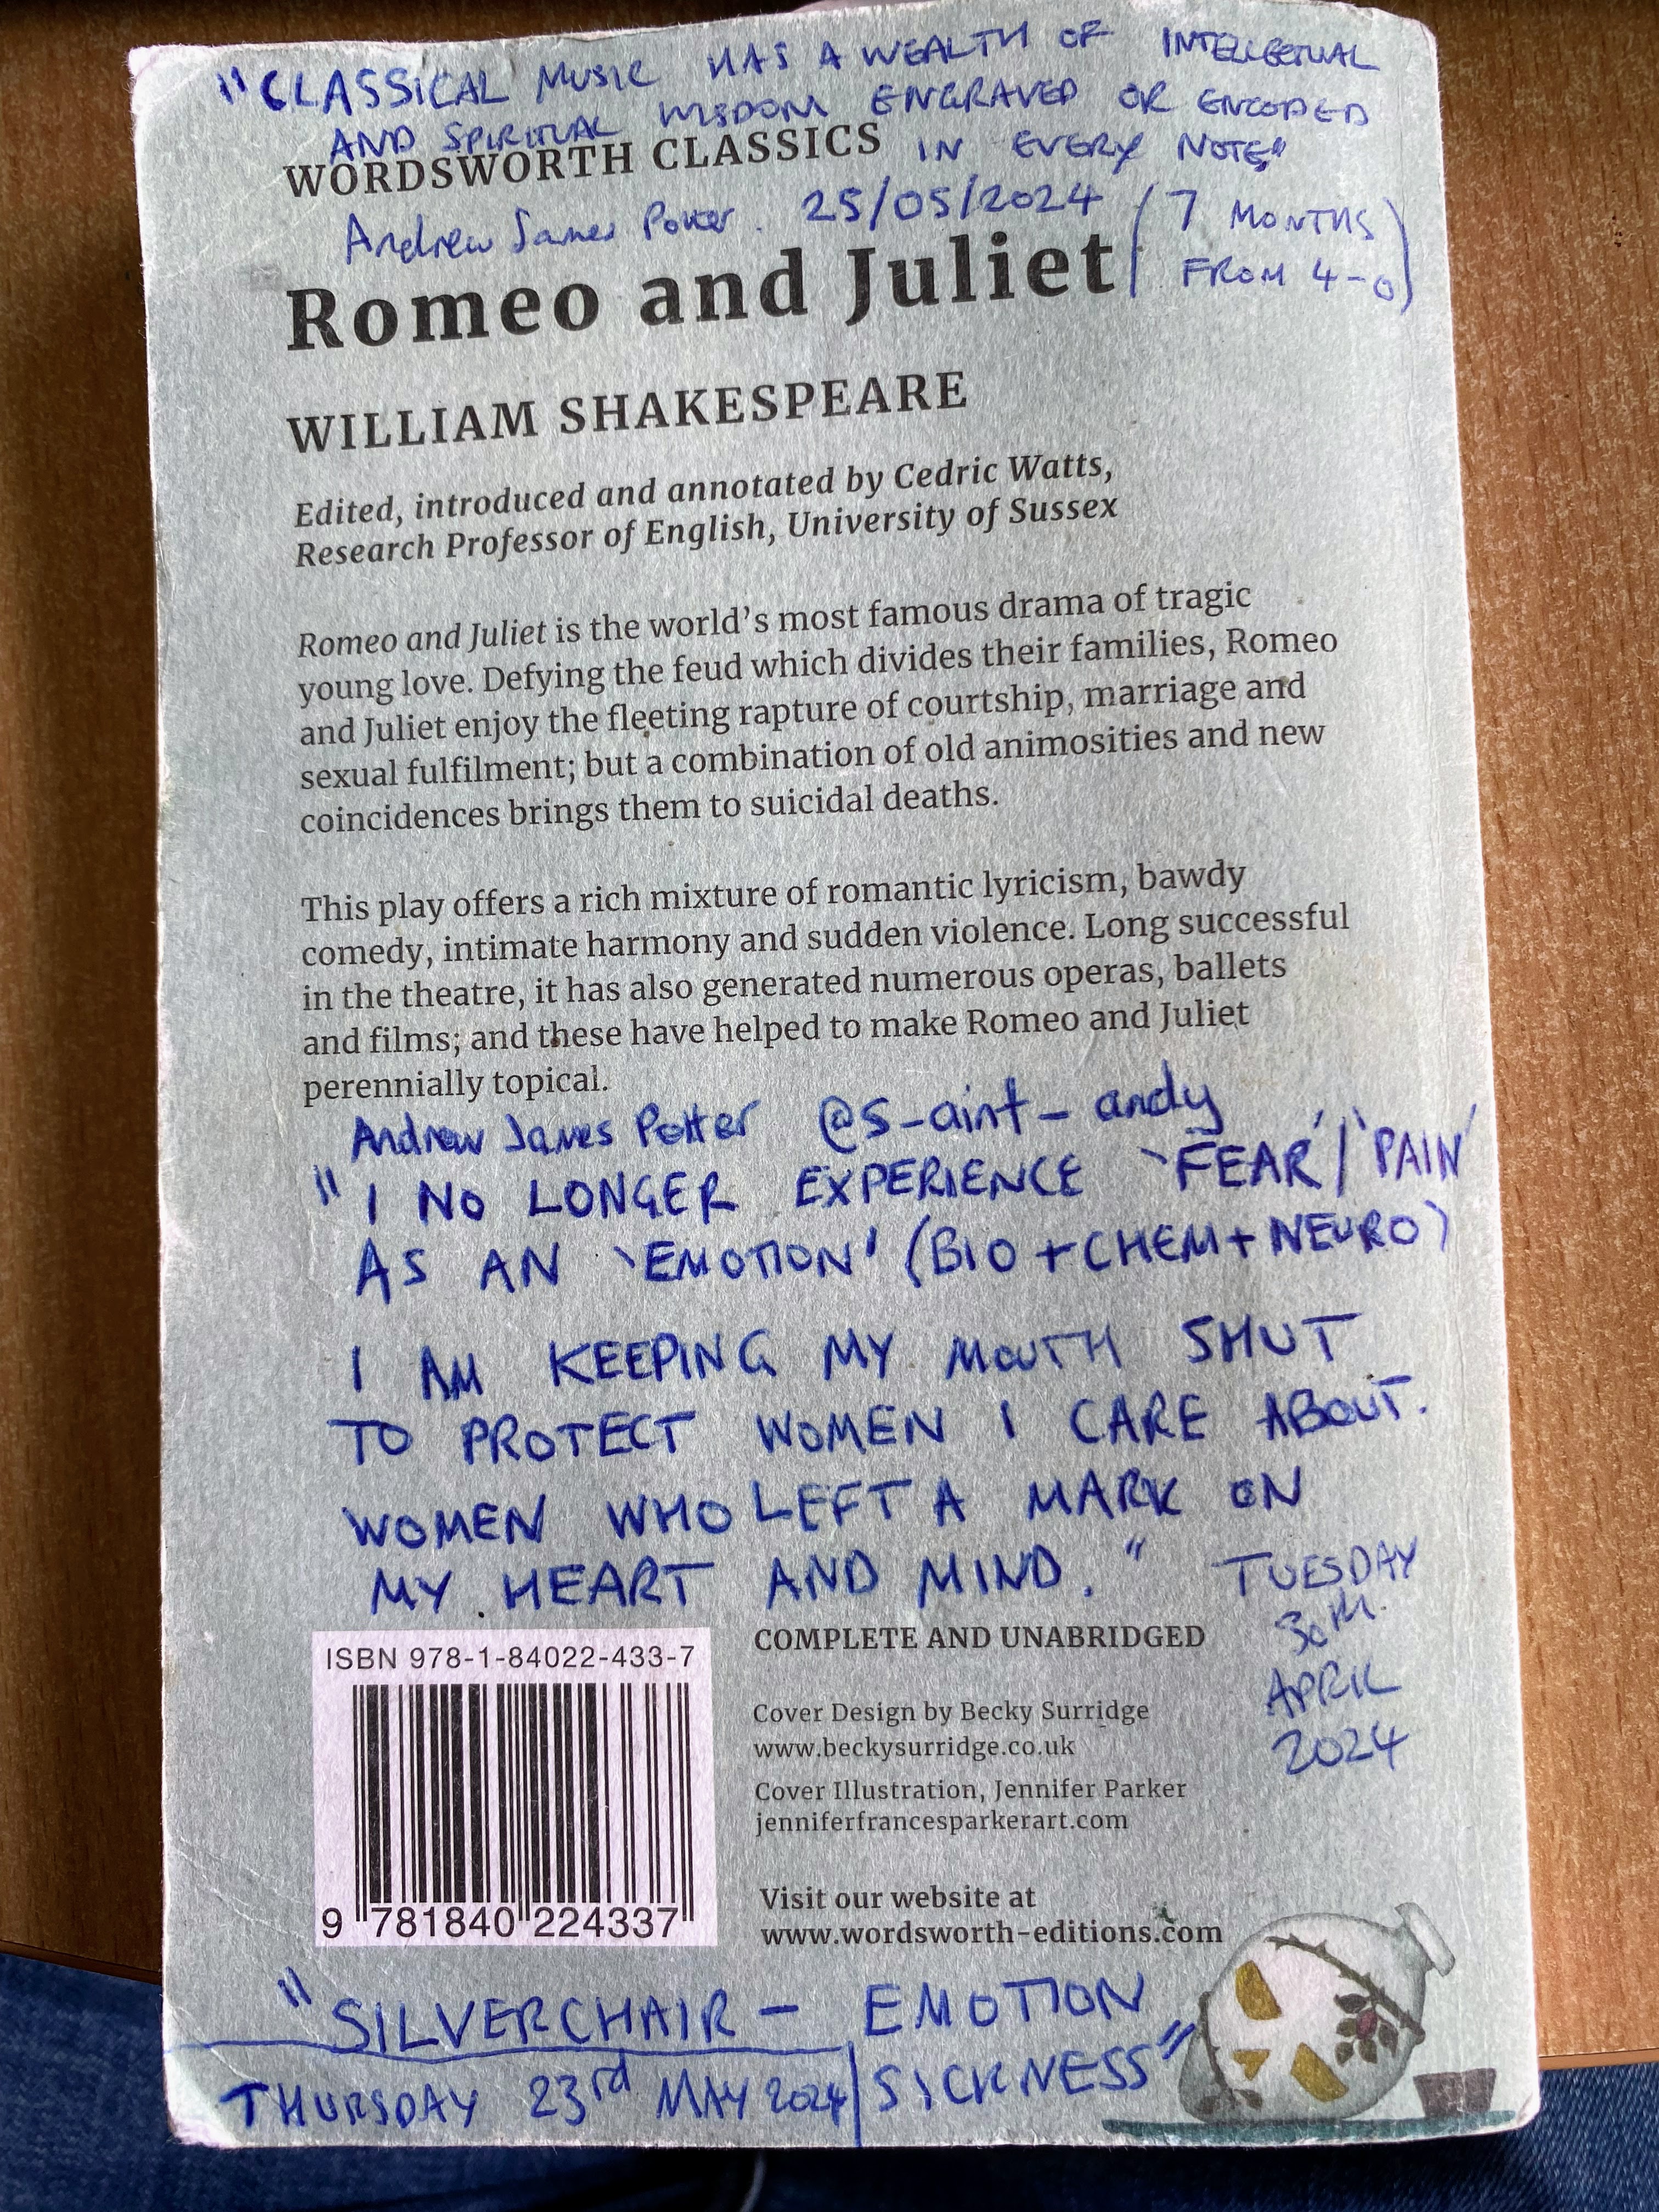 "CLASSICAL MUSIC HAS A WEALTH OF INTELLECTUAL
AND SPIRITUAL WISDOM ENGRAVED OR ENCODED
IN EVERY NOTE,"
WORDSWORTH CLASSICS
Andrew James Potter. 25/05/2024 (7 MONTHS
FROM 4-0)
Romeo and Juliet
WILLIAM SHAKESPEARE
Edited, introduced and annotated by Cedric Watts,
Research Professor of English, University of Sussex
Romeo and Juliet is the world's most famous drama of tragic
young love. Defying the feud which divides their families, Romeo
and Juliet enjoy the fleeting rapture of courtship, marriage and
sexual fulfilment; but a combination of old animosities and new
coincidences brings them to suicidal deaths.
This play offers a rich mixture of romantic lyricism, bawdy
comedy, intimate harmony and sudden violence. Long successful
in the theatre, it has also generated numerous operas, ballets
and films; and these have helped to make Romeo and Juliet
perennially topical.
Andrew James Potter @s-aint-andy
"I NO LONGER EXPERIENCE 'FEAR'/'PAIN'
AS AN 'EMOTION' (BIO+CHEM+NEURO)
I AM KEEPING MY MOUTH SHUT
TO PROTECT WOMEN I CARE ABOUT.
WOMEN WHO LEFT A MARK ON
MY HEART AND MIND."
TUESDAY
30TH
APRIL
2024
ISBN 978-1-84022-433-7
9 781840 224337
COMPLETE AND UNABRIDGED
Cover Design by Becky Surridge
www.beckysurridge.co.uk
Cover Illustration, Jennifer Parker
jenniferfrancesparkerart.com
Visit our website at
www.wordsworth-editions.com
"SILVERCHAIR - EMOTION
SICKNESS"
THURSDAY 23rd MAY 2024